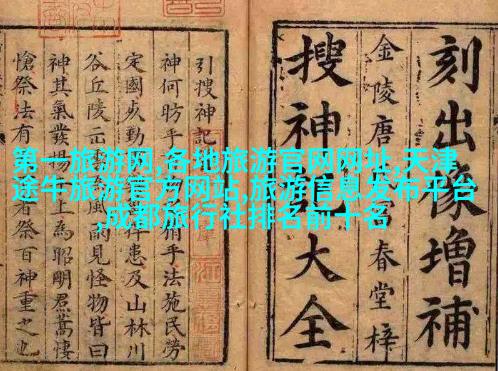 刻出像增補
金陵唐富春堂梓
搜神記大全
引搜神記
神何昉乎手法施民勞
定國患及山林川
谷丘陵雨見怪物皆曰
神其氣發揚上為昭明焄蒿悽
愴祭法有者祭百神重之也
第一旅游网,各地旅游官网网址,天津
途牛旅游官方网站,旅游信息发布平台
,成都旅行社排名前十名